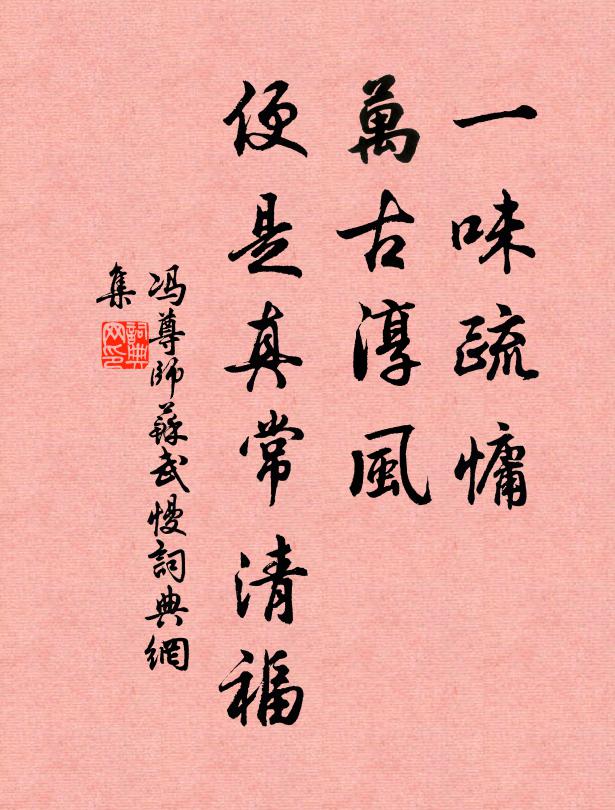 一味疏慵
萬古淳風
便是真常清福
冯尊師蘇武慢詞典網
集
詞典網印